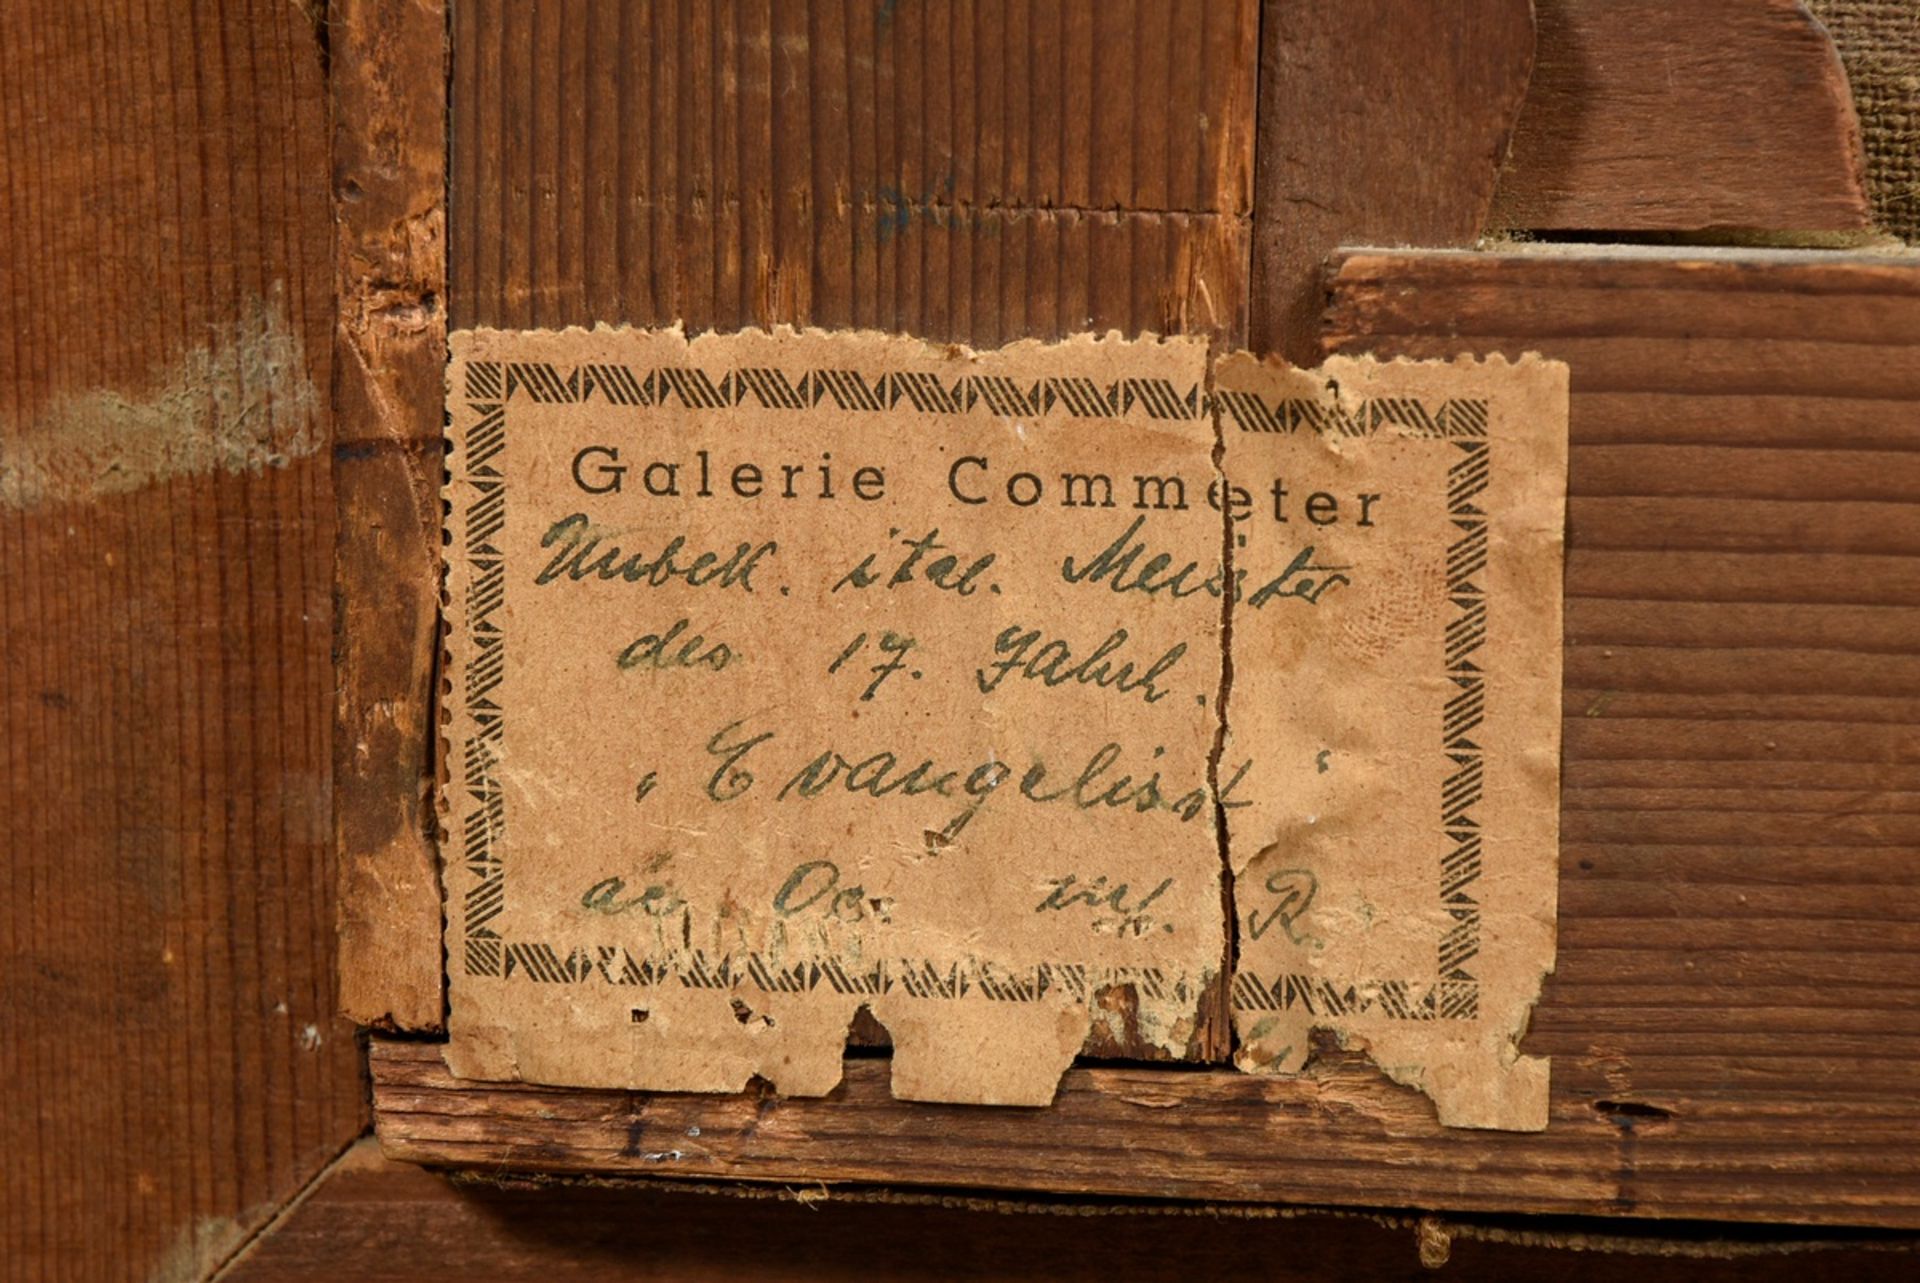 Galerie Commeter
Unbek. ital. Meister
des 17. Jahrh.
"Evangelist"
R.